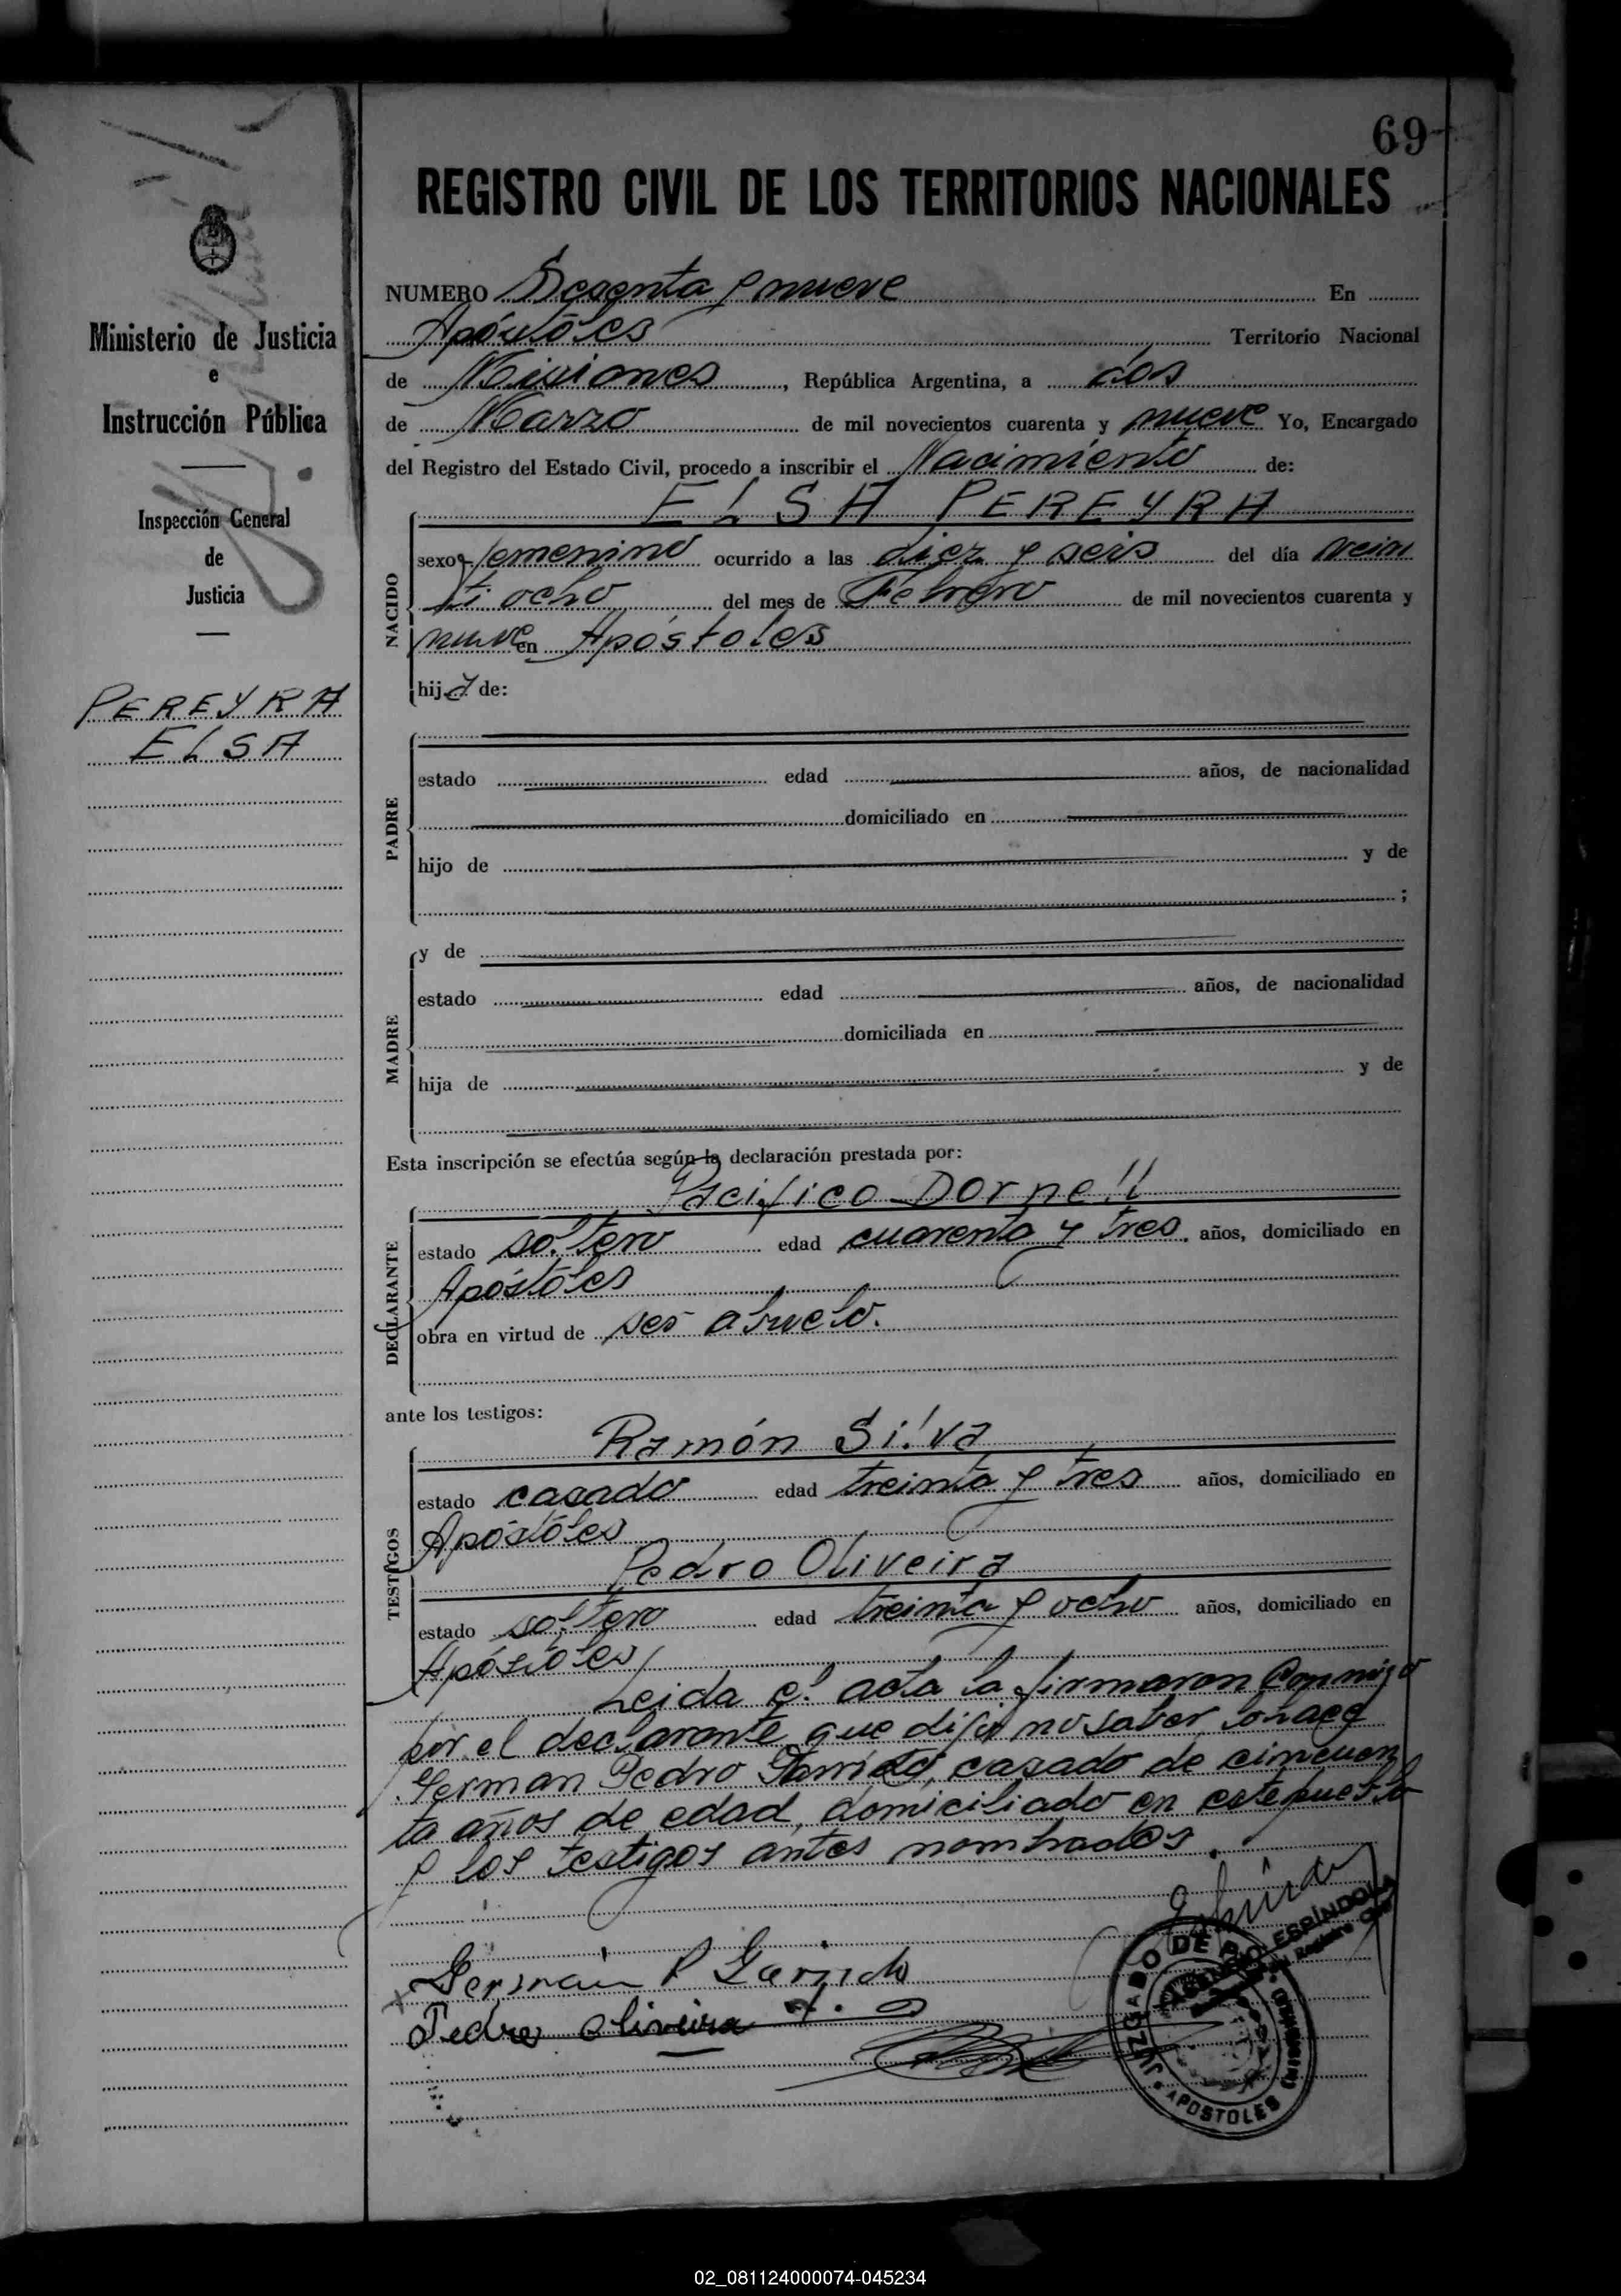 69
REGISTRO CIVIL DE LOS TERRITORIOS NACIONALES
Ministerio de Justicia
e
Instrucción Pública
Inspección General
de
Justicia
PEREYRA
ELSA
NUMERO Sesenta y nueve En
Apóstoles Territorio Nacional
de Misiones, República Argentina, a dos
de Marzo de mil novecientos cuarenta y nueve Yo, Encargado
del Registro del Estado Civil, procedo a inscribir el Nacimiento de:
ELSA PEREYRA
NACIDO
sexo femenino ocurrido a las diez y seis del día vein
ti ocho del mes de Febrero de mil novecientos cuarenta y
nueve en Apóstoles
hija de:
PADRE
estado edad años, de nacionalidad
domiciliado en
hijo de y de
;
MADRE
y de
estado edad años, de nacionalidad
domiciliada en
hija de y de
Esta inscripción se efectúa según la declaración prestada por:
Pacifico Dornell
DECLARANTE
estado soltero edad cuarenta y tres años, domiciliado en
Apóstoles
obra en virtud de ser abuelo.
ante los testigos:
Ramón Silva
TESTIGOS
estado casado edad treinta y tres años, domiciliado en
Apóstoles
Pedro Oliveira
estado soltero edad treinta y ocho años, domiciliado en
Apóstoles
Leida el acta la firmaron conmigo
por el declarante que dijo no saber lo hace
German Pedro Garrido, casado de cincuen
ta años de edad, domiciliado en este pueblo
y los testigos antes nombrados.
German P Garrido
Pedro Oliveira
JUZGADO DE P
APOSTOLES
(MISIONES)
ESPÍNDOLA
Registro Civil
02_081124000074-045234